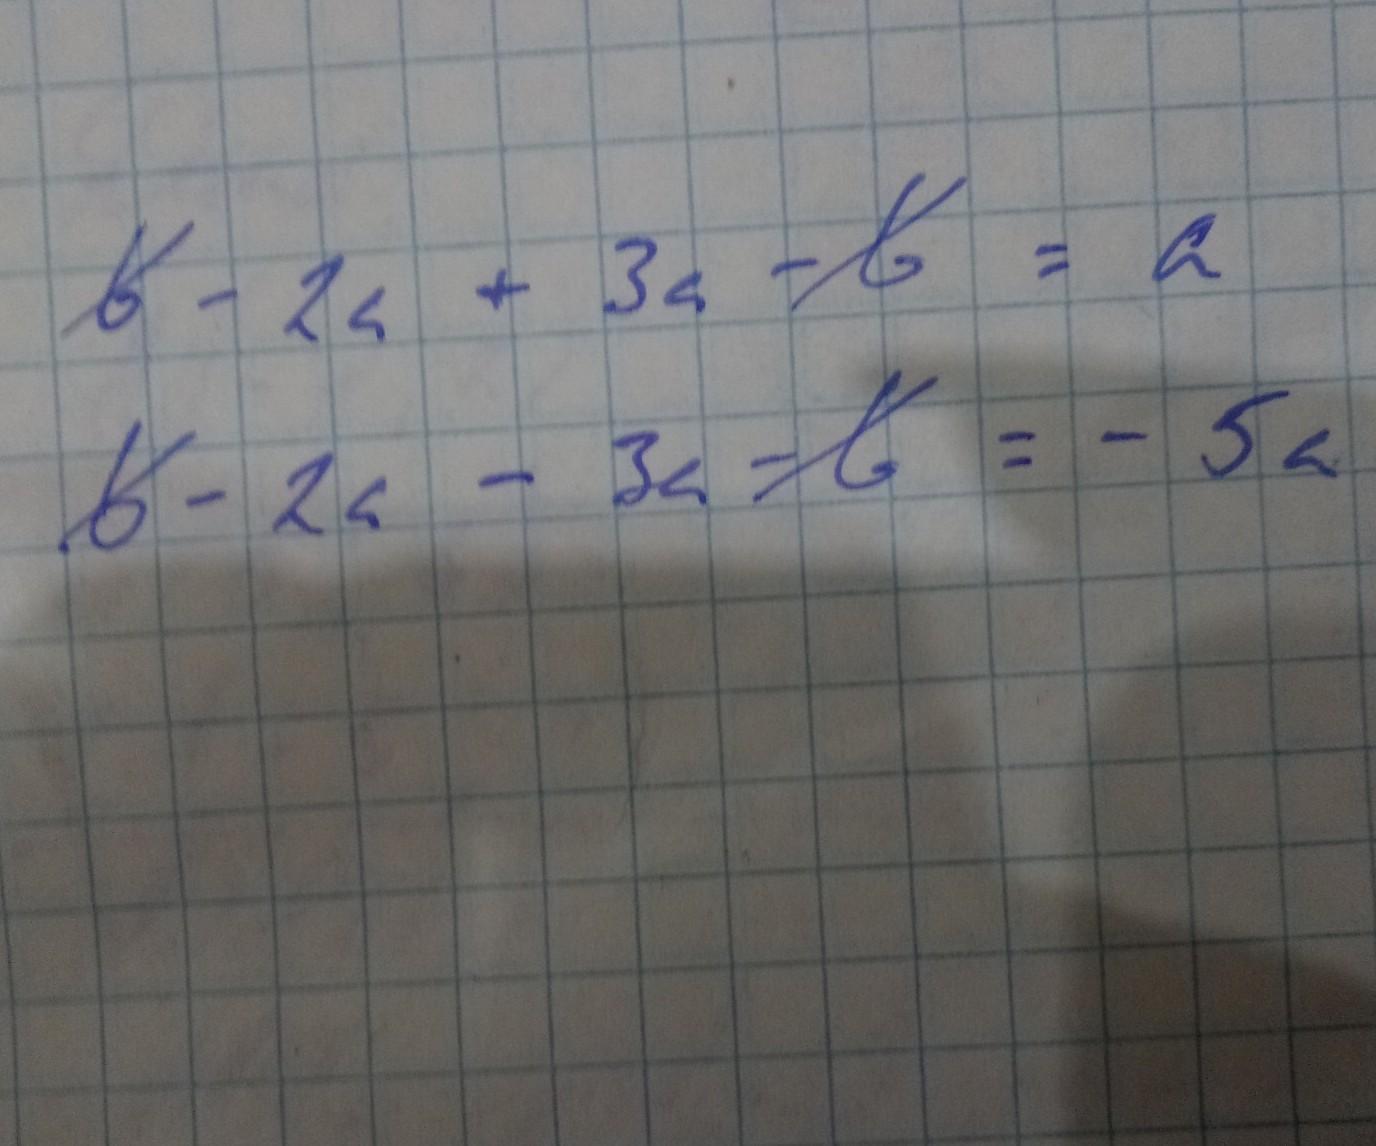 b - 2a + 3a - b = a
b - 2a - 3a - b = - 5a